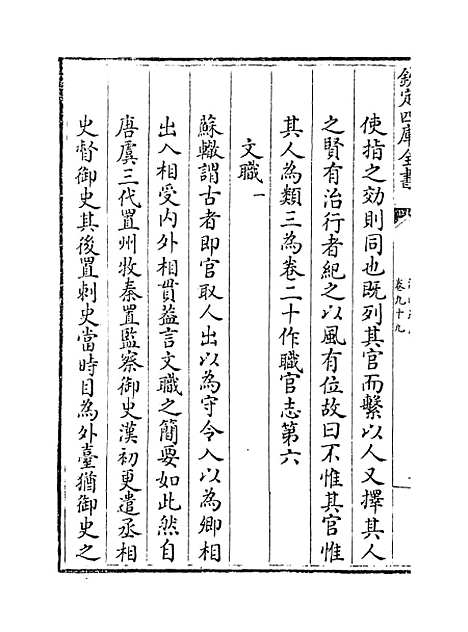 欽定四庫全書
卷九十九
使指之効則同也既列其官而繫以人又擇其人
之賢有治行者紀之以風有位故曰不惟其官惟
其人為類三為卷二十作職官志第六
文職一
蘇轍謂古者即官取人出以為守令入以為卿相
出入相受内外相貫葢言文職之簡要如此然自
唐虞三代置州牧秦置監察御史漢初更遣丞相
史督御史其後置刺史當時目為外臺猶御史之